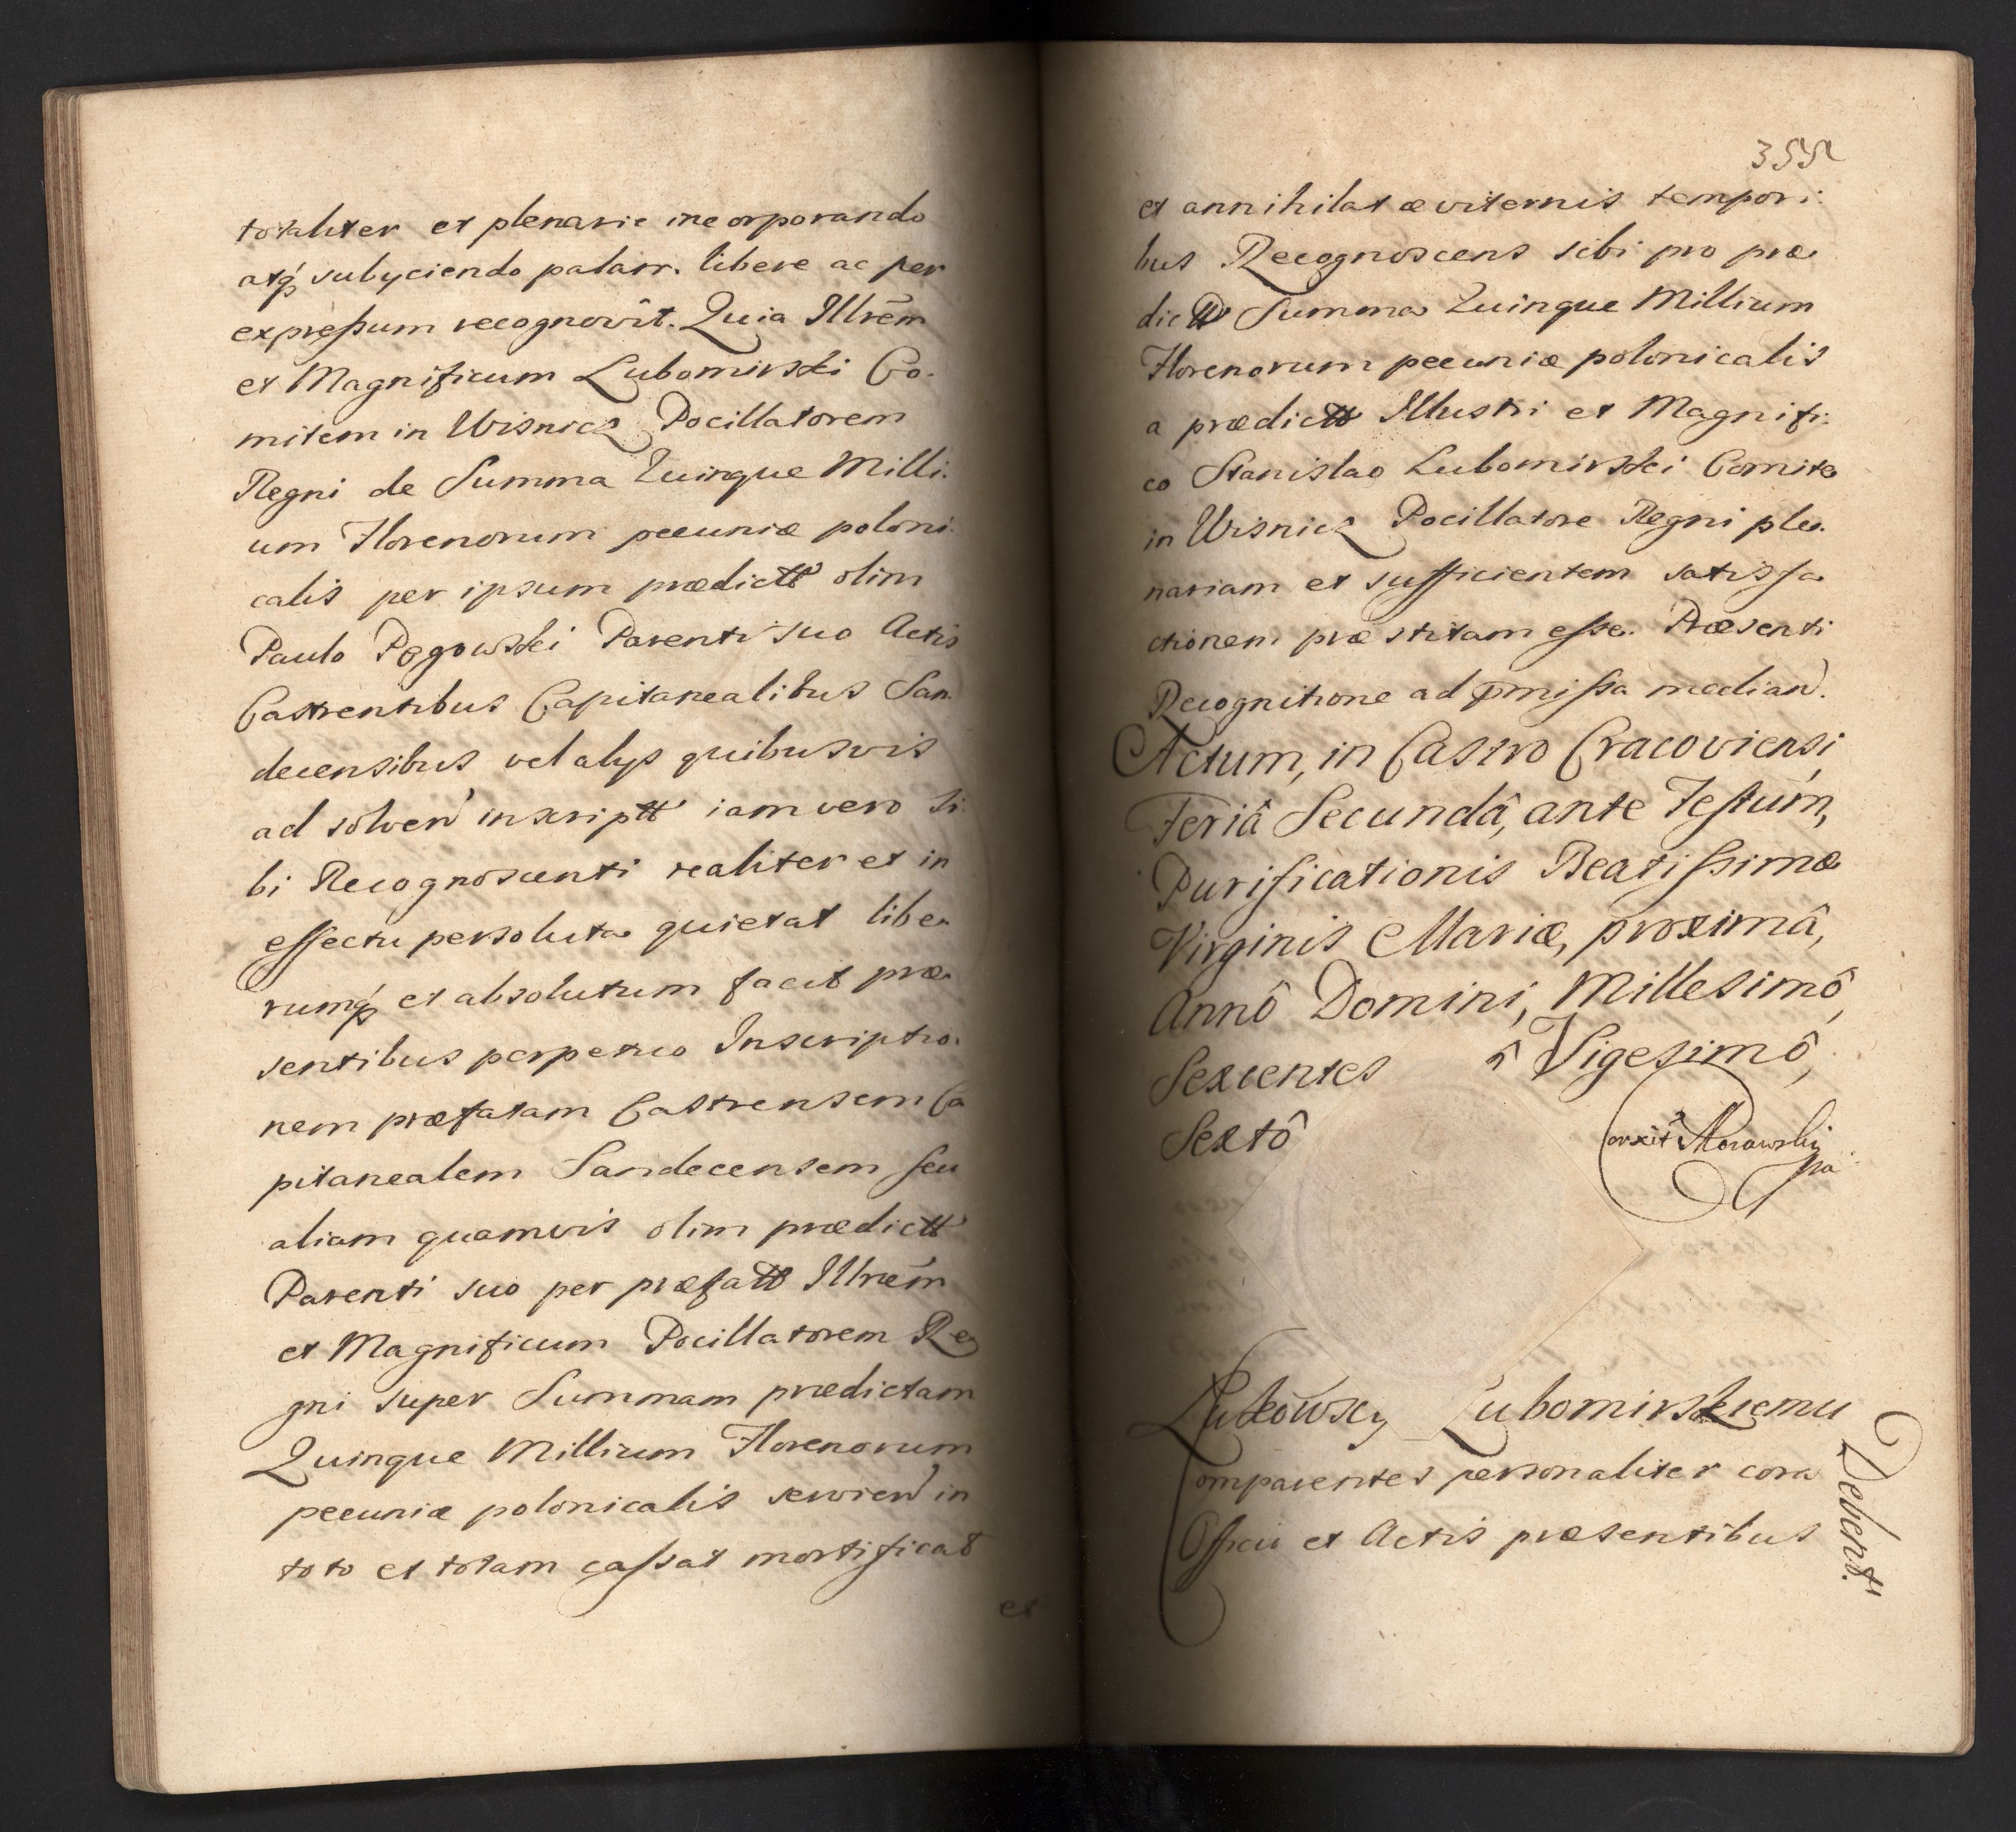 totaliter et plenarie incorporando
atq́ subyciendo palam. libere ac per
expreßum recognovit. Quia Illrēm
et Magnificum Lubomirski Co.
mitem in Wisnicz Pocillatorem
Regni de Summa Quinque Milli.
um Florenorum pecuniæ poloni.
calis per ipsum prædictt olim
Paulo Pęgowski Parenti suo Actis
Castrentibus Capitanealibus San
decensibus vel alys quibusvis
ad solven inscriptt iam vero si.
bi Recognoscenti realiter et in
effectu persoluta quietat libe
rumq́ et absolutum facit præ
sentibus perpetuo Inscriptio.
nem præfatam Castrensem Ca
pitanealem Sandecensem seu
aliam quamvis olim prædictt
Parenti suo per præfatt Illrēm
et Magnificum Pocillatorem Re
gni super Summam prædictam
Quinque Millium Florenorum
pecuniæ polonicalis servien in
toto et totam caßat mortificat
et
355
et annihilat æviternis tempori:
bus Recognoscens sibi pro præ
dictt Summa Quinque Millium
Florenorum pecuniæ polonicalis
a prædictt Illustri et Magnifi:
co Stanislao Lubomirski Comite
in Wisnicz Pocillatore Regni ple.
nariam et sufficientem satisfa
ctionem præstitam eße. Præsenti
Recognitione ad p̄mißa median.
Actum, in Castro Cracoviensi,
Feriâ Secundâ, ante Festum,
Purificationis Beatißimæ
Virginis Mariæ, proximâ,
Annô Domini, Millesimô,
Sexcentes ô Vigesimô,
Sextô
Corxit Morawski
Lubomirskiemu
Comparentes personaliter cora
Officio et Actis præsentibus
Debent.